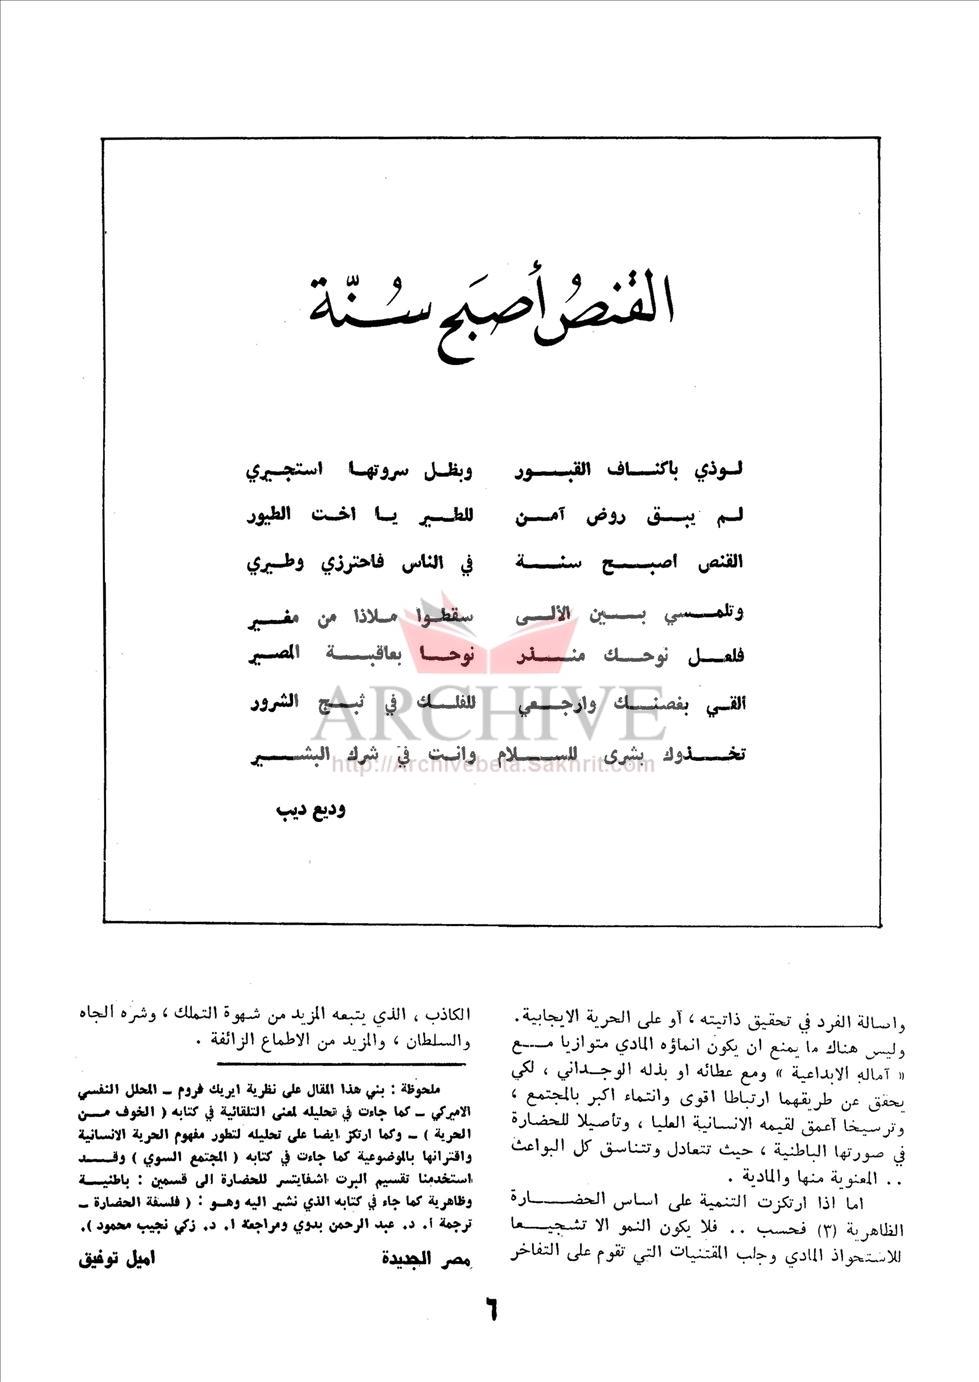 القنصُ أصبَح سُنّة
لوذي باكناف القبور وبظل سروتها استجيري
لم يبق روض آمن للطير يا اخت الطيور
القنص اصبح سنة في الناس فاحترزي وطيري
وتلمسي بين الألى سقطوا ملاذا من مغير
فلعل نوحك منذر نوحا بعاقبة المصير
القي بغصنك وارجعي للفلك في ثبج الشرور
تخذوك بشرى للسلام وانت في شرك البشير
وديع ديب
ARCHIVE
http://Archivebeta.Sakhrit.com
واصالة الفرد في تحقيق ذاتيته ، أو على الحرية الايجابية .
وليس هناك ما يمنع ان يكون انماؤه المادي متوازيا مع
« آماله الابداعية » ومع عطائه او بذله الوجداني ، لكي
يحقق عن طريقهما ارتباطا اقوى وانتماء اكبر بالمجتمع ،
وترسيخا أعمق لقيمه الانسانية العليا ، وتأصيلا للحضارة
في صورتها الباطنية ، حيث تتعادل وتتناسق كل البواعث
.. المعنوية منها والمادية .
اما اذا ارتكزت التنمية على اساس الحضارة
الظاهرية (٣) فحسب .. فلا يكون النمو الا تشجيعا
للاستحواذ المادي وجلب المقتنيات التي تقوم على التفاخر
الكاذب ، الذي يتبعه المزيد من شهوة التملك ، وشره الجاه
والسلطان ، والمزيد من الاطماع الزائفة .
ملحوظة : بني هذا المقال على نظرية ايريك فروم – المحلل النفسي
الاميركي – كما جاءت في تحليله لمعنى التلقائية في كتابه ( الخوف من
الحرية ) – وكما ارتكز ايضا على تحليله لتطور مفهوم الحرية الانسانية
واقترانها بالموضوعية كما جاءت في كتابه ( المجتمع السوي ) وقد
استخدمنا تقسيم البرت اشفايتسر للحضارة الى قسمين : باطنية
وظاهرية كما جاء في كتابه الذي نشير اليه وهو : ( فلسفة الحضارة –
ترجمة أ. د. عبد الرحمن بدوي ومراجعة ا. د. زكي نجيب محمود ).
مصر الجديدة اميل توفيق
٦